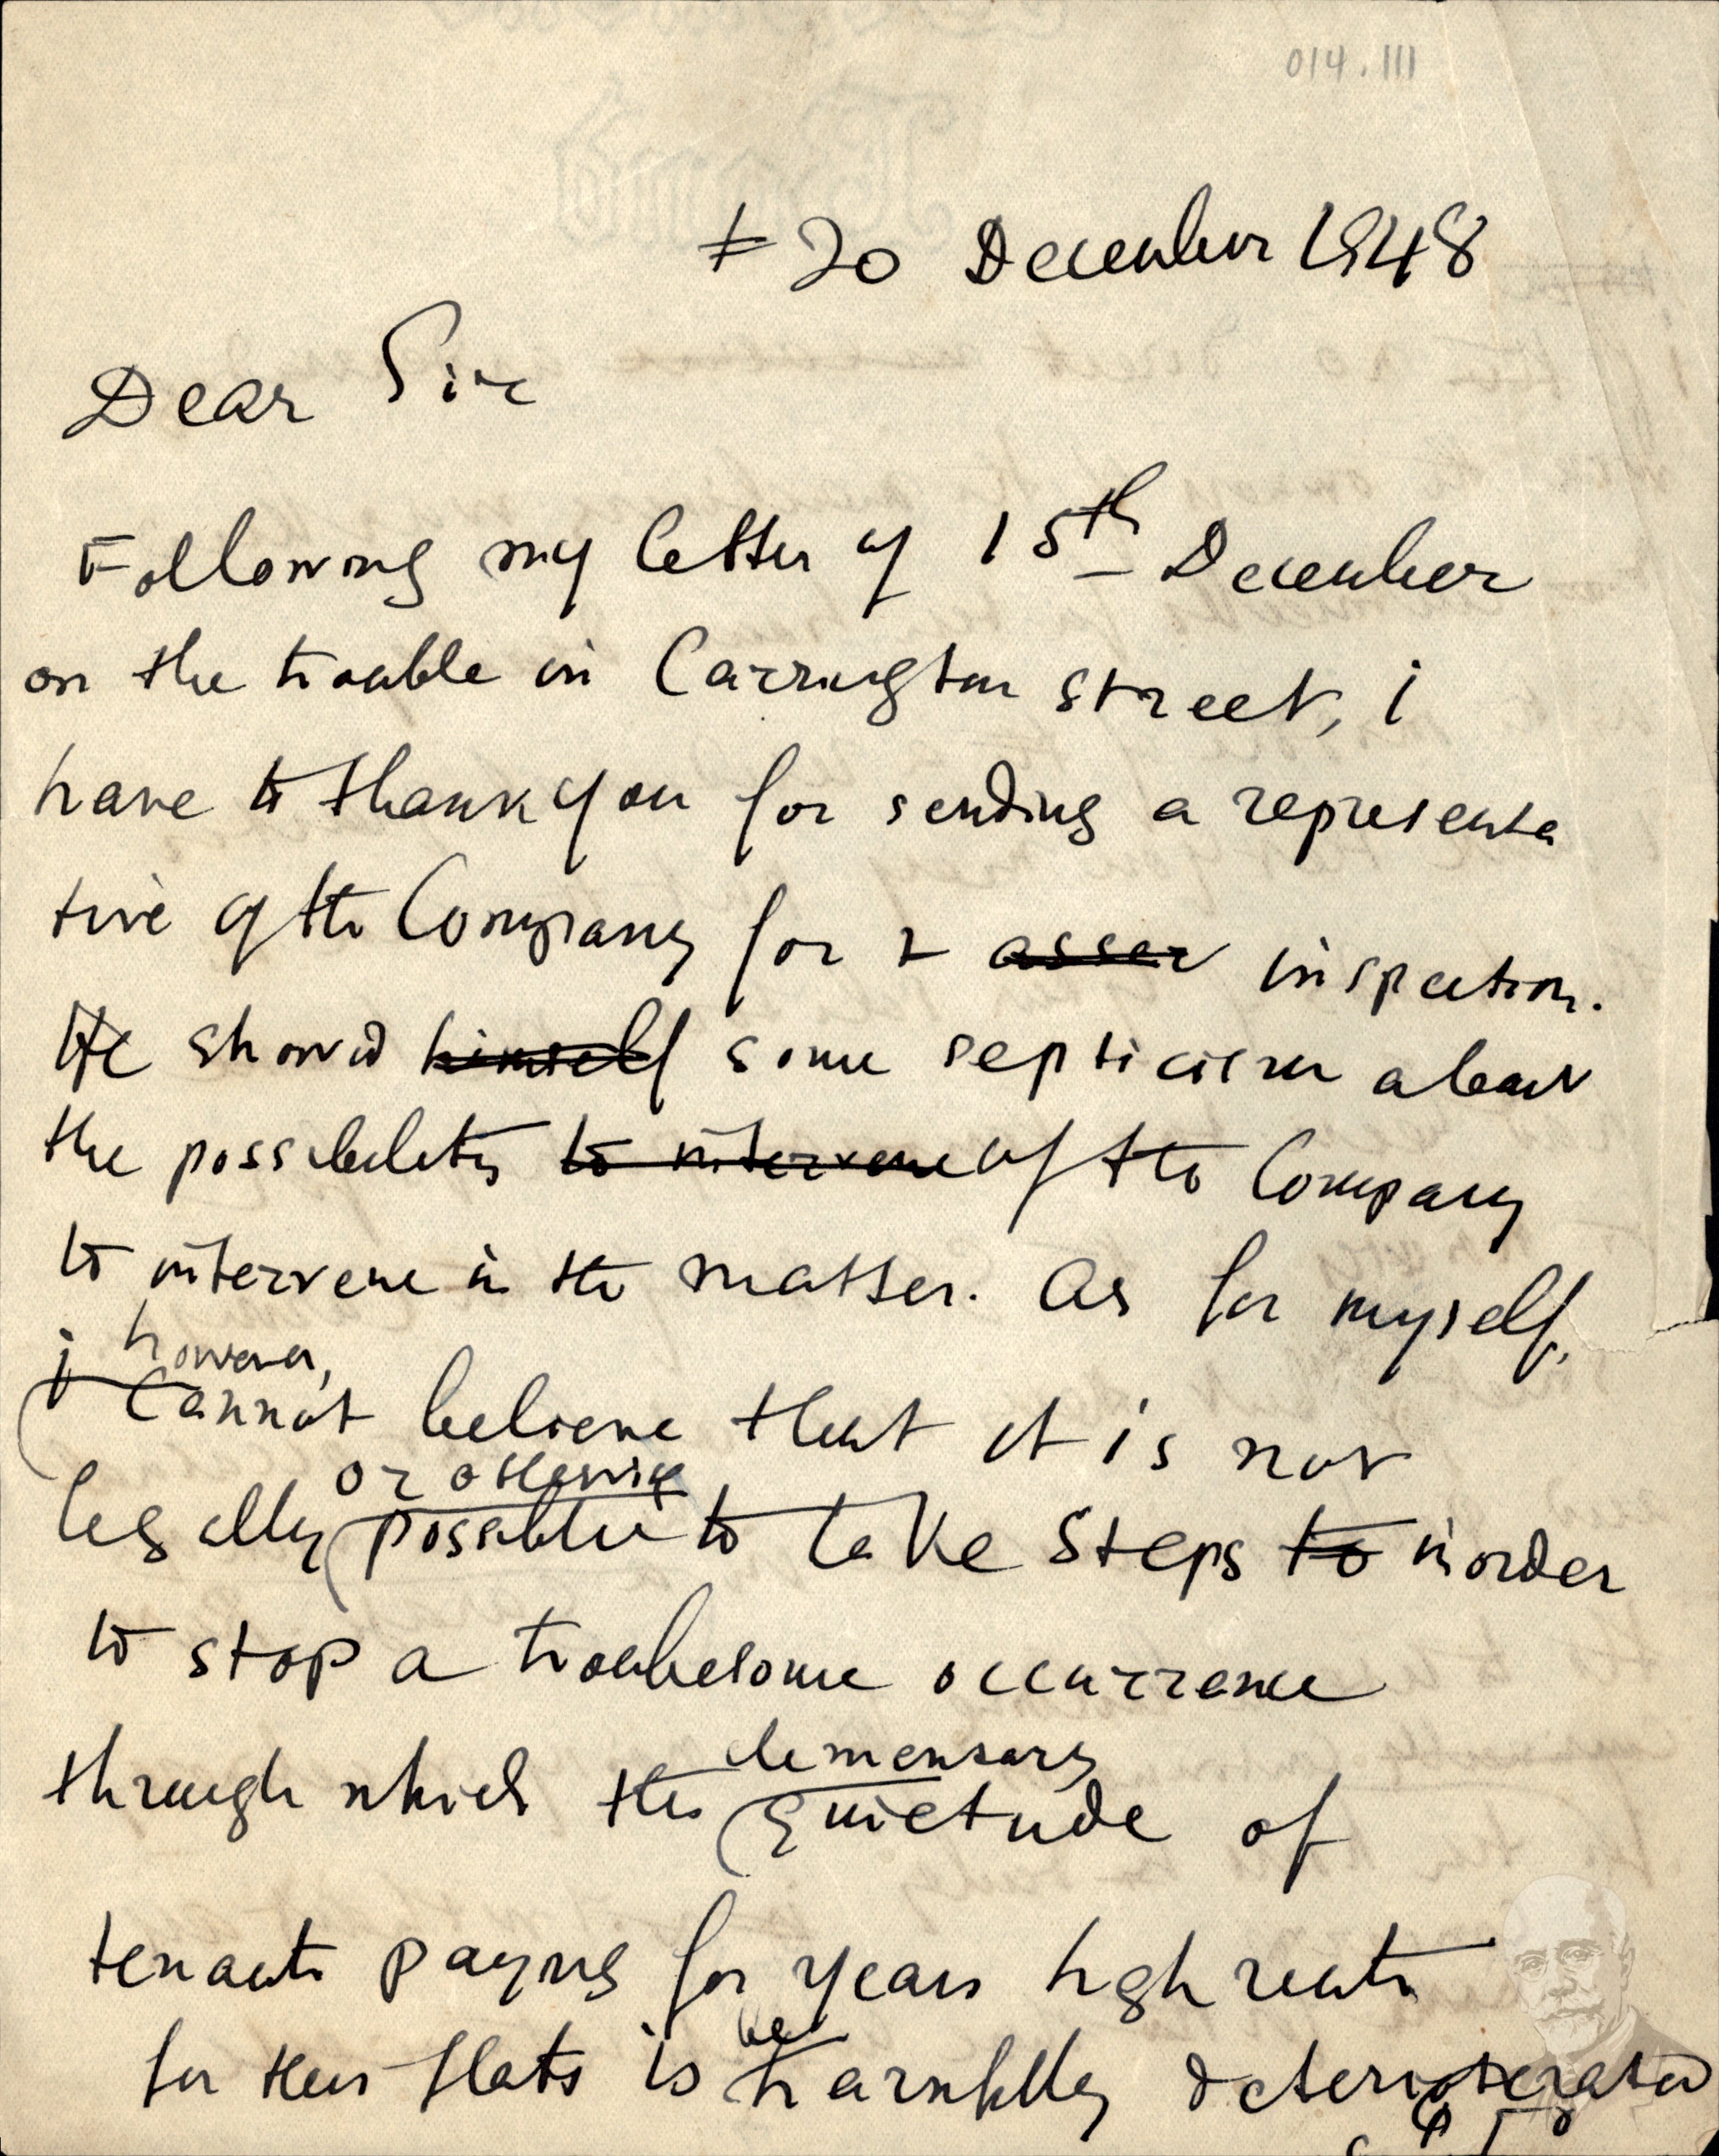 014.111
20 December 1948
Dear Sir
Following my letter of 15th December
on the trouble in Carrington street, i
have to thank you for sending a representa
tive of the Company for asser inspection.
He showed himself some septicism about
the possibility to intervene of the Company
to intervene in the matter. As for myself,
i however,
cannot believe that it is not
or otherwise
legally possible to take steps to in order
to stop a troublesome occurrence
elementary
through which the quietude of
tenants paying for years high rents
be
for their flats is harmfully